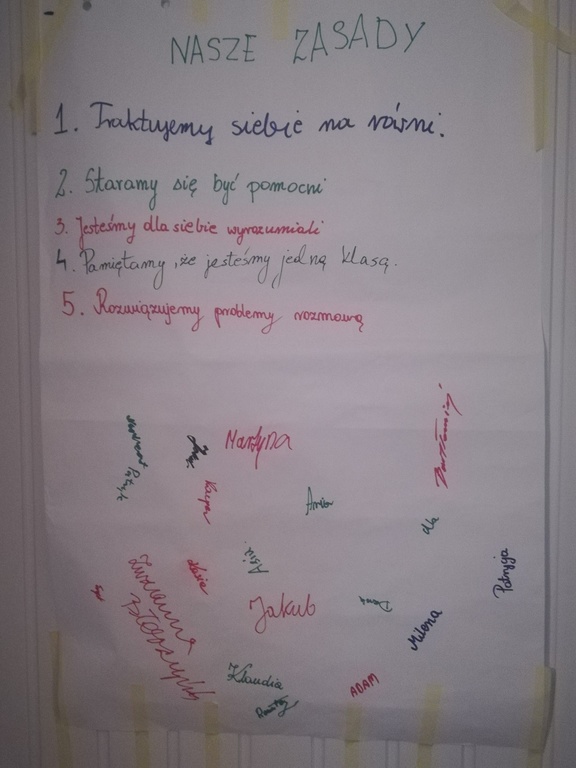 NASZE ZASADY
1. Traktujemy siebie na równi.
2. Staramy się być pomocni
3. Jesteśmy dla siebie wyrozumiali
4. Pamiętamy, że jesteśmy jedną klasą.
5. Rozwiązujemy problemy rozmową
Martyna
Bartłomiej
Kacper
Patryk
Ania
Ola
Asia
Kasia
Patrycja
Zuzanna
Jakub
Daria
Milena
Klaudia
ADAM